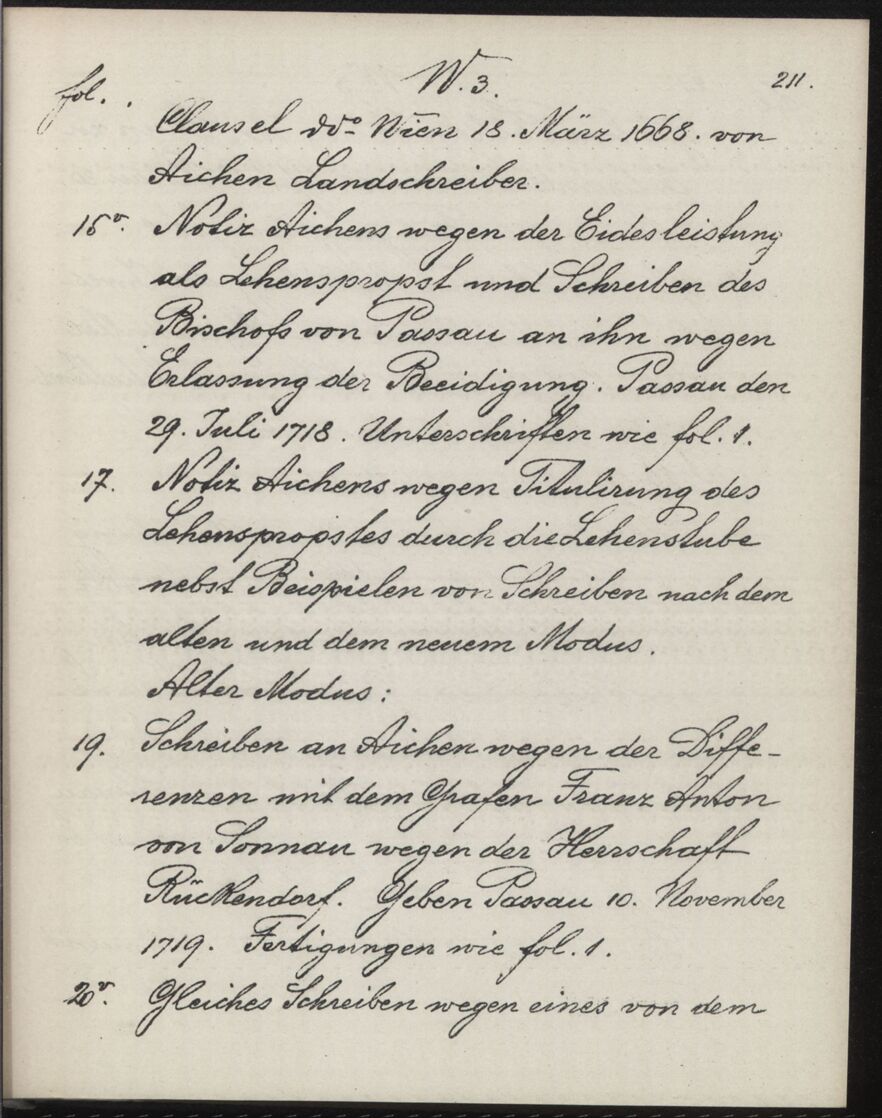 W. 3.
211.
fol.
Clausel ddo Wien 18. März 1668. von
Aichen Landschreiber.
15v. Notiz Aichens wegen der Eidesleistung
als Lehenspropst und Schreiben des
Bischofs von Passau an ihn wegen
Erlassung der Beeidigung. Passau den
29. Juli 1718. Unterschriften wie fol. 1.
17. Notiz Aichens wegen Titulirung des
Lehenspropstes durch die Lehenstube
nebst Beispielen von Schreiben nach dem
alten und dem neuem Modus.
Alter Modus:
19. Schreiben an Aichen wegen der Diffe-
renzen mit dem Grafen Franz Anton
von Sonnau wegen der Herrschaft
Rückendorf. Geben Passau 10. November
1719. Fertigungen wie fol. 1.
20v. Gleiches Schreiben wegen eines von dem